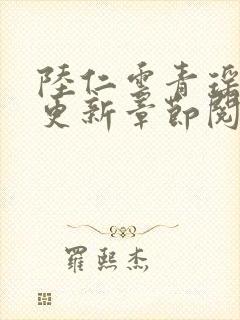 陸仁雲青瑶
更新章節閱
羅熙杰